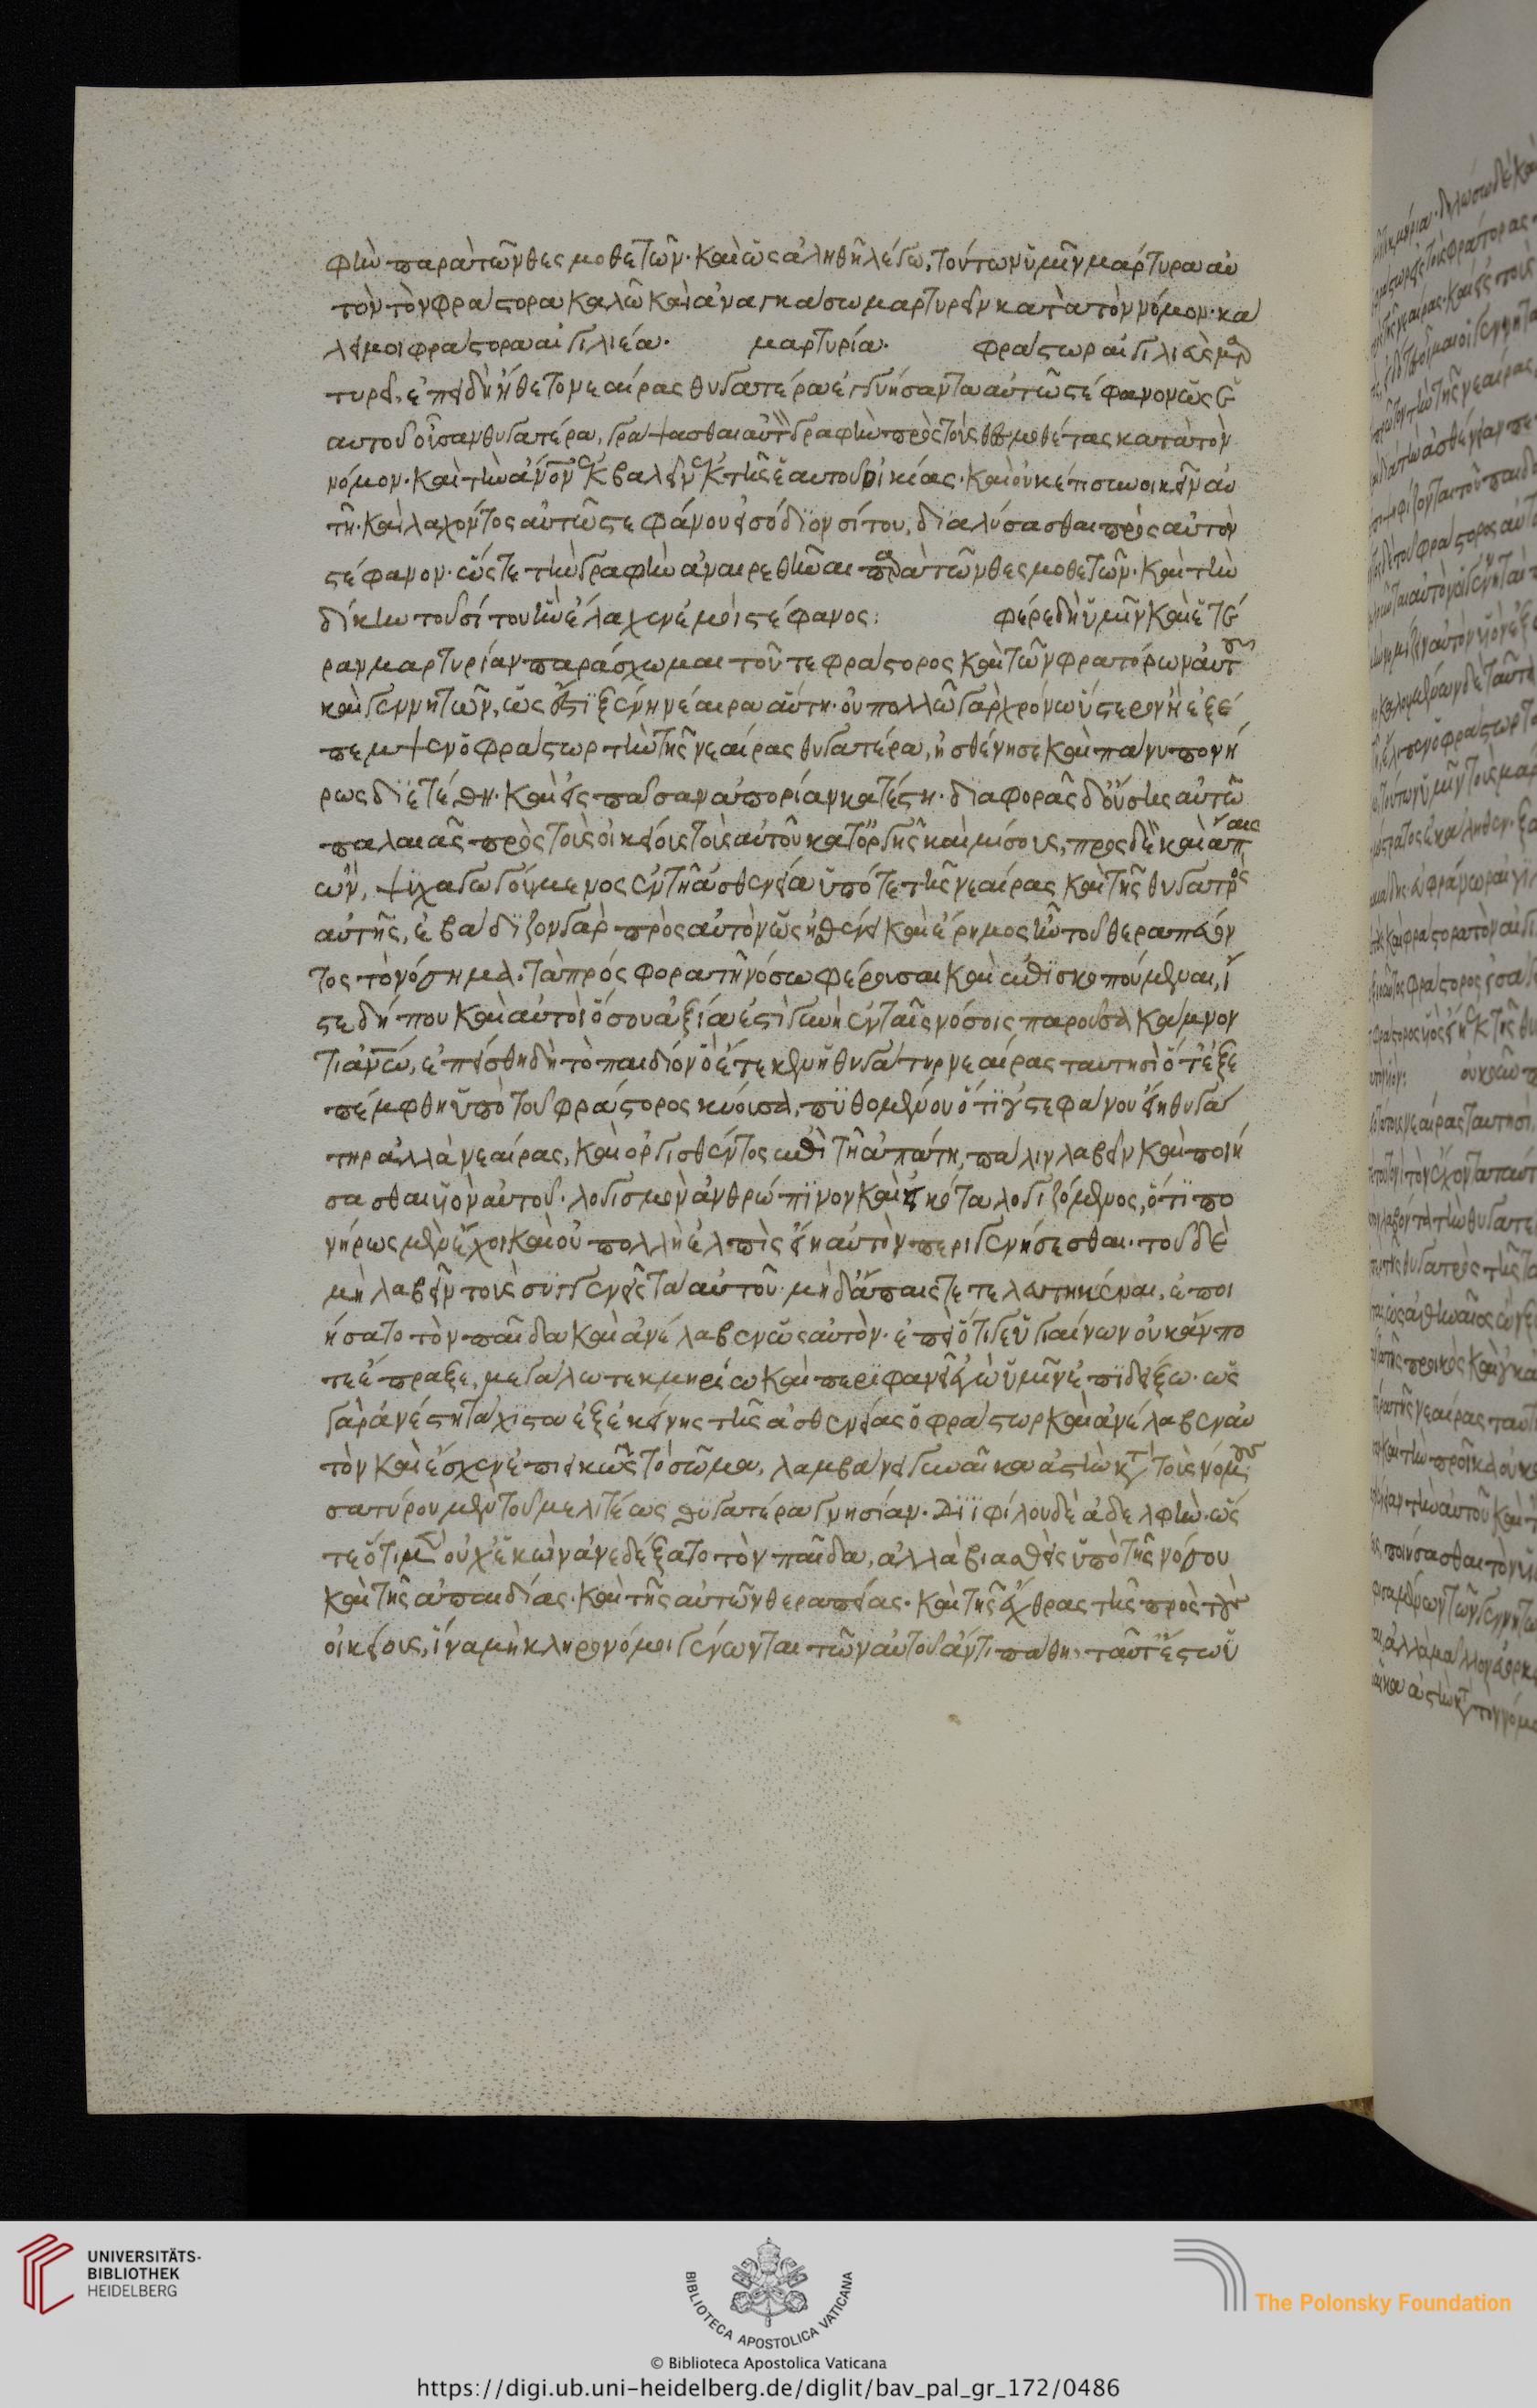 φὴν παρὰ τῶν θεσμοθετῶν· καὶ ὡς ἀληθῆ λέγω, τούτων ὑμῖν μάρτυρα αὐ
τὸν τὸν φράστορα καλῶ καὶ ἀναγκάσω μαρτυρεῖν κατὰ τὸν νόμον· κά
λει μοι φράστορα αἰγιλιέα. μαρτυρία. φράστωρ αἰγιλιεὺς μαρ
τυρεῖ, ἐπειδὴ ᾔσθετο νεαίρας θυγατέρα ἐγγυήσαντα αὐτῶ στέφανον ὡς ἑ
αυτοῦ οὖσαν θυγατέρα, γράψασθαι αὐτὸν γραφὴν πρὸς τοὺς θεσμοθέτας κατὰ τὸν
νόμον· καὶ τὴν ἄνον ἐκβαλεῖν ἐκ τῆς ἑαυτοῦ οἰκίας· καὶ οὐκέτι συνοικεῖν αὐ
τῆ· καὶ λαχόντος αὐτῶ στεφάνου εἰς ὠδεῖον σίτου, διαλύσασθαι πρὸς αὐτὸν
στέφανον· ὥστε τὴν γραφὴν ἀναιρεθῆναι παρὰ τῶν θεσμοθετῶν· καὶ τὴν
δίκην τοῦ σίτου ἣν ἔλαχεν ἐμοὶ στέφανος: φέρε δὴ ὑμῖν καὶ ἑτέ
ραν μαρτυρίαν παράσχωμαι τοῦ τε φράστορος καὶ τῶν φρατόρων αὐτοῦ
καὶ γεννητῶν, ὡς ἔστι ξένη νέαιρα αὕτη· οὐ πολλῶ γὰρ χρόνω ὕστερον ἢ ἐξέ
πεμψεν ὁ φράστωρ τὴν τῆς νεαίρας θυγατέρα, ἠσθένησε καὶ πάνυ πονή
ρως διετέθη· καὶ εἰς πᾶσαν ἀπορίαν κατέστη· διαφορᾶς δ' οὔσης αὐτῶ
παλαιᾶς πρὸς τοὺς οἰκείους τοὺς αὐτοῦ καὶ ὀργῆς καὶ μίσους, πρὸς δὲ καὶ ἄπαις
ὢν, ψυχαγωγούμενος ἐν τῆ ἀσθενεία ὑπό τε τῆς νεαίρας καὶ τῆς θυγατρὸς
αὐτῆς, ἐβάδιζον γὰρ πρὸς αὐτὸν ὡς ἠσθένει καὶ ἔρημος ἦν τοῦ θεραπεύον
τος τὸ νόσημα. τὰ πρόσφορα τῆ νόσω φέρουσαι καὶ ἐπισκοπούμεναι, ἴ
στε δή που καὶ αὐτοὶ ὅσου ἀξία ἐστὶ γυνὴ ἐν ταῖς νόσοις παροῦσα κάμνον
τι ἀνω, ἐπείσθη δὴ τὸ παιδίον ὃ ἔτεκεν ἡ θυγάτηρ νεαίρας ταυτησὶ ὅτ' ἐξε
πέμφθη ὑπὸ τοῦ φράστορος κύουσα, πυθομένου ὅτι οὐ στεφάνου εἴη θυγά
τηρ ἀλλὰ νεαίρας, καὶ ὀργισθέντος ἐπὶ τῆ ἀπάτη, πάλιν λαβεῖν καὶ ποιή
σασθαι ὑὸν αὑτοῦ· λογισμὸν ἀνθρώπινον καὶ εἰκότα λογιζόμενος, ὅτι πο
νήρως μὲν ἔχοι καὶ οὐ πολλὴ ἐλπὶς εἴη αὐτὸν περιγενήσεσθαι· τοῦ δὲ
μὴ λαβεῖν τοὺς συγγενεῖς τὰ αὐτοῦ· μηδ' ἄπαις τετελευτηκέναι, ἐποι
ήσατο τὸν παῖδα καὶ ἀνέλαβεν ὡς αὐτόν· ἐπεὶ ὅτι γε ὑγιαίνων οὐκ ἄν πο
τε ἔπραξε, μεγάλω τεκμηρίω καὶ περιφανεῖ ἐγὼ ὑμῖν ἐπιδείξω· ὡς
γὰρ ἀνέστη τάχιστα ἐξ ἐκείνης τῆς ἀσθενείας ὁ φράστωρ καὶ ἀνέλαβεν αὐ
τὸν καὶ ἔσχεν ἐπιεικῶς τὸ σῶμα, λαμβάνει γυναῖκα ἀστὴν κατὰ τοὺς νόμους
σατύρου μὲν τοῦ μελιτέως θυγατέρα γνησίαν. Διϊφίλου δὲ ἀδελφὴν· ὥς
τε ὅτι μὲν οὐχ ἑκὼν ἀνεδέξατο τὸν παῖδα, ἀλλὰ βιασθεὶς ὑπὸ τῆς νόσου
καὶ τῆς ἀπαιδίας· καὶ τῆς αὐτῶν θεραπείας· καὶ τῆς ἔχθρας τῆς πρὸς τοὺς
οἰκείους, ἵνα μὴ κληρονόμοι γένωνται τῶν αὑτοῦ ἄν τι πάθη, ταῦτ' ἔστω ὑ
UNIVERSITÄTS-
BIBLIOTHEK
HEIDELBERG
BIBLIOTECA APOSTOLICA VATICANA
The Polonsky Foundation
© Biblioteca Apostolica Vaticana
https://digi.ub.uni-heidelberg.de/diglit/bav_pal_gr_172/0486